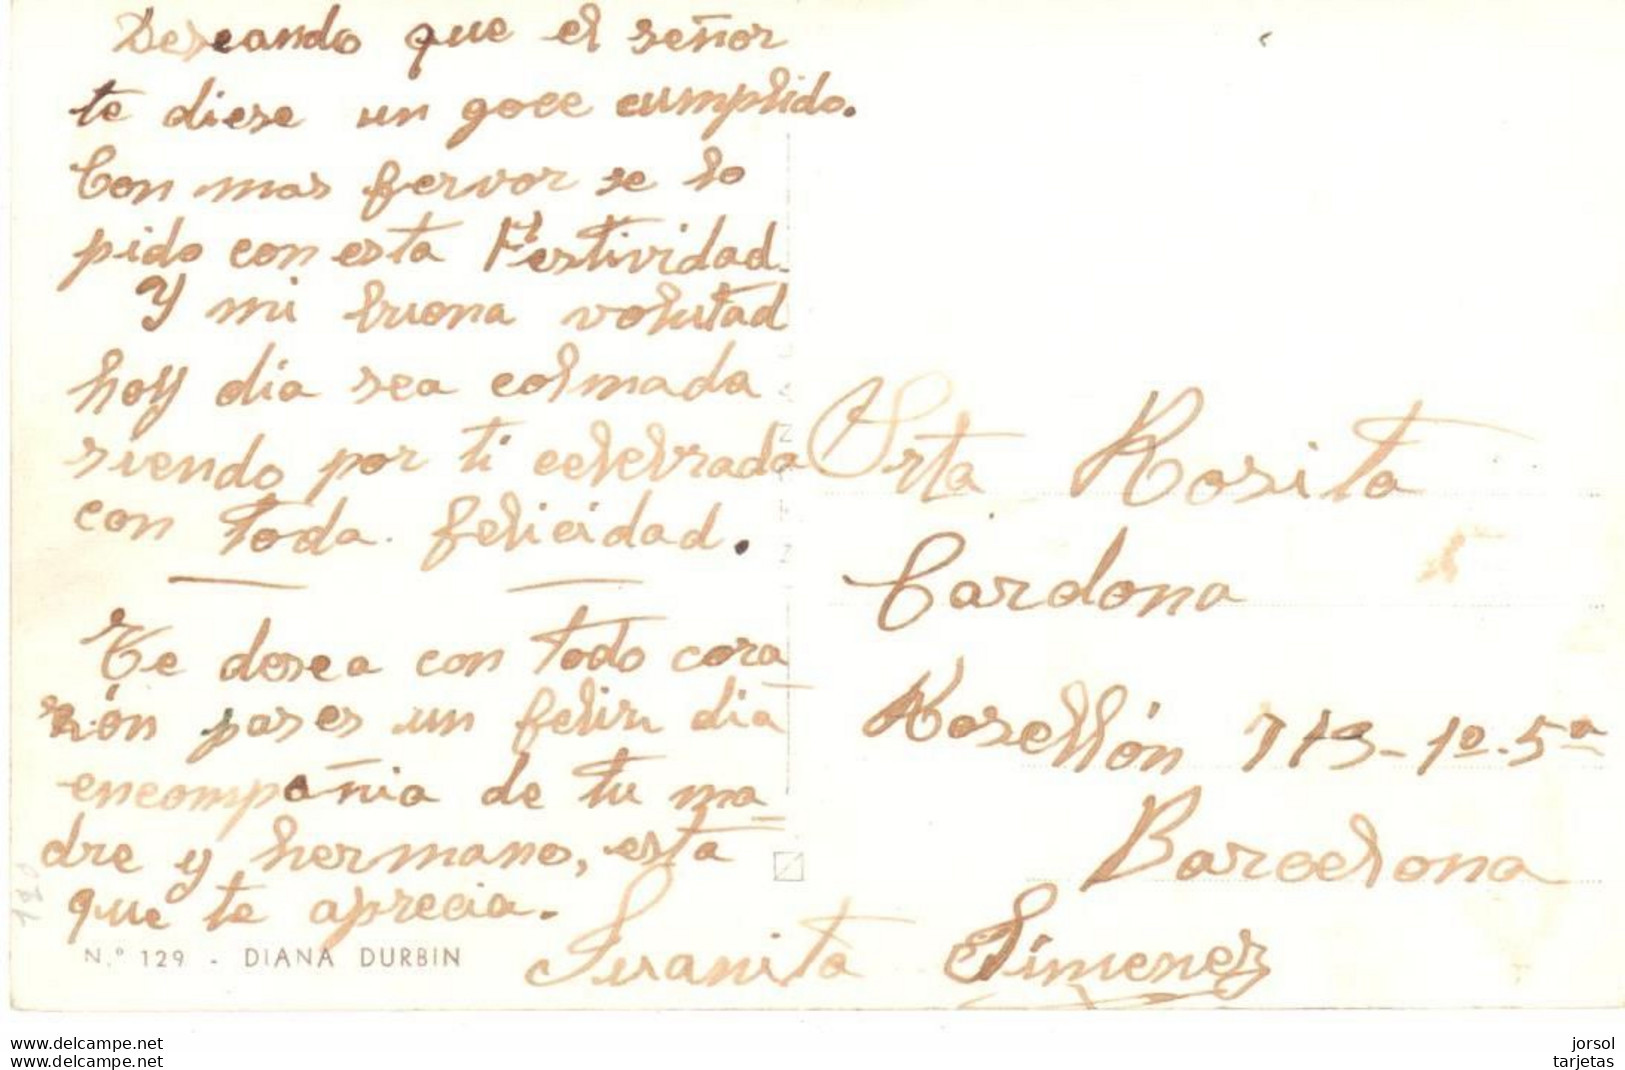 Deseando que el señor
te diese un goce cumplido.
Con mas fervor se lo
pido con esta Festividad.
Y mi buona volutad
hoy dia sea colmada
siendo por ti celebrada
con toda felicidad.
Te desea con todo cora
zón pases un feliz dia
encompañia de tu ma-
dre y hermano, esta
que te aprecia.
Juanita Simenez
Srta Rosita
Cardona
Rosellón 713-1º-5ª
Barcelona
120
N.º 129 - DIANA DURBIN
www.delcampe.net
www.delcampe.net
jorsol
tarjetas